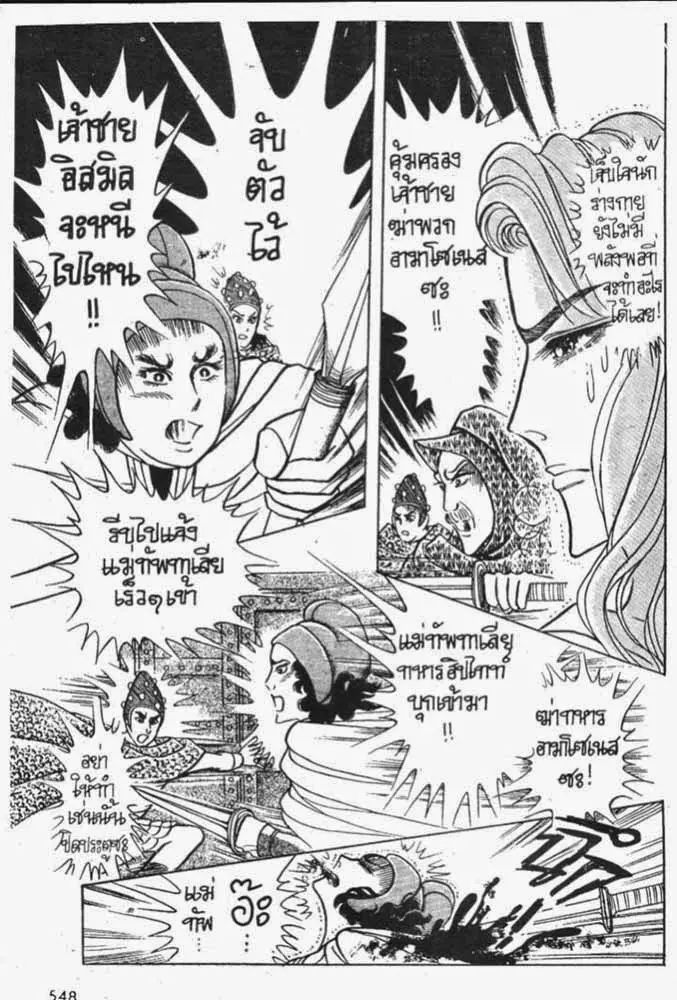 เจ้าชาย
อิสมิล
จะหนี
ไปไหน
!!
จับ
ตัว
ไว้
คุ้มครอง
เจ้าชาย
ฆ่าพวก
อามาโซเนส
ซะ
!!
เจ็บใจนัก
ร่างกาย
ยังไม่มี
พลังพอที่
จะทำอะไร
ได้เลย!
รีบไปแจ้ง
แม่ทัพทาเลีย
เร็วๆเข้า
แม่ทัพทาเลีย
ทหารฮิปไทท์
บุกเข้ามา
!!
ฆ่าทหาร
อามาโซเนส
ซะ!
อย่า
ให้ทำ
เช่นนั้น
ปิดประตูซะ
แม่
ทัพ
......
อ๊ะ
......
548